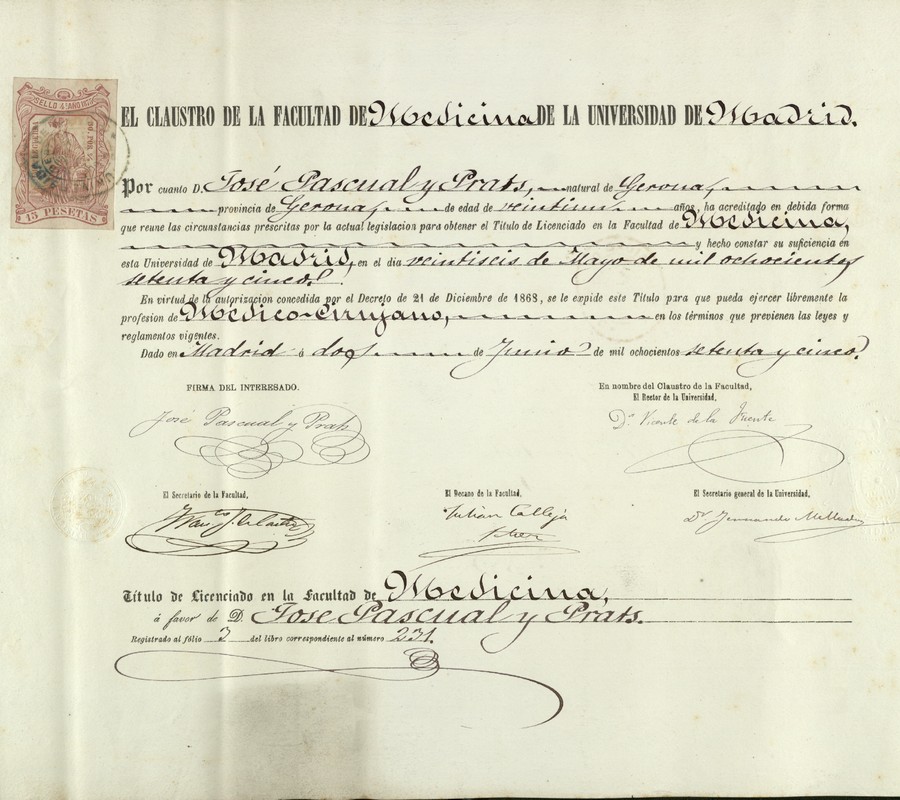 SELLO 4º AÑO 187
15 PESETAS
EL CLAUSTRO DE LA FACULTAD DE Medicina DE LA UNIVERSIDAD DE Madrid.
Por cuanto D. José Pascual y Prats, natural de Gerona,
provincia de Gerona, de edad de veintiun años, ha acreditado en debida forma
que reune las circunstancias prescritas por la actual legislacion para obtener el Título de Licenciado en la Facultad de Medicina,
y hecho constar su suficiencia en
esta Universidad de Madrid, en el dia veintiseis de Mayo de mil ochocientos
setenta y cinco.
En virtud de la autorizacion concedida por el Decreto de 21 de Diciembre de 1868, se le expide este Título para que pueda ejercer libremente la
profesion de Médico-Cirujano, en los términos que previenen las leyes y
reglamentos vigentes.
Dado en Madrid á dos de Junio de mil ochocientos setenta y cinco.
FIRMA DEL INTERESADO.
En nombre del Claustro de la Facultad,
El Rector de la Universidad,
José Pascual y Prats
Dr. Vicente de la Fuente
El Secretario de la Facultad,
El Decano de la Facultad,
El Secretario general de la Universidad,
Julian Calleja
Dr. Fernando Mellado
Título de Licenciado en la Facultad de Medicina,
á favor de D. Jose Pascual y Prats.
Registrado al fólio 3 del libro correspondiente al número 231.